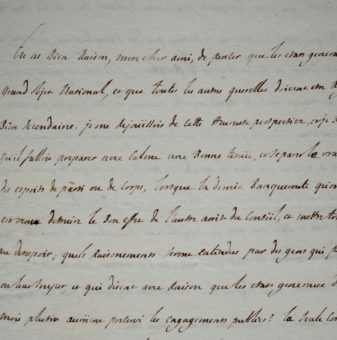 tu as Bien Raison, mon cher ami, de penser que les etats generaux
grand objet National, et que toutes les autres querelles doivent etre
Bien secondaires. je me rejouissois de cette heureuse perspective, et je
qu'il falloit preparer avec Calme une Bonne tenue, et separer
des esprits de parti ou de Corps, lorsque la demie Banqueroute
est venue detruire le Bon effet de l'autre arrêt du Conseil, et mettre
au desespoir, quels Raisonnements seront entendus par des gens qui
ou leur et qui disent avec Raison que les etats generaux
mois plutôt auroient prevenu les engagements publics? la seule